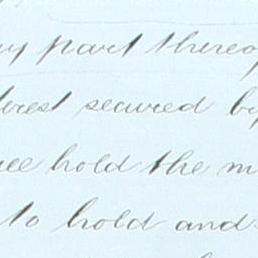 part thereo
secured by
hold the m
to hold and